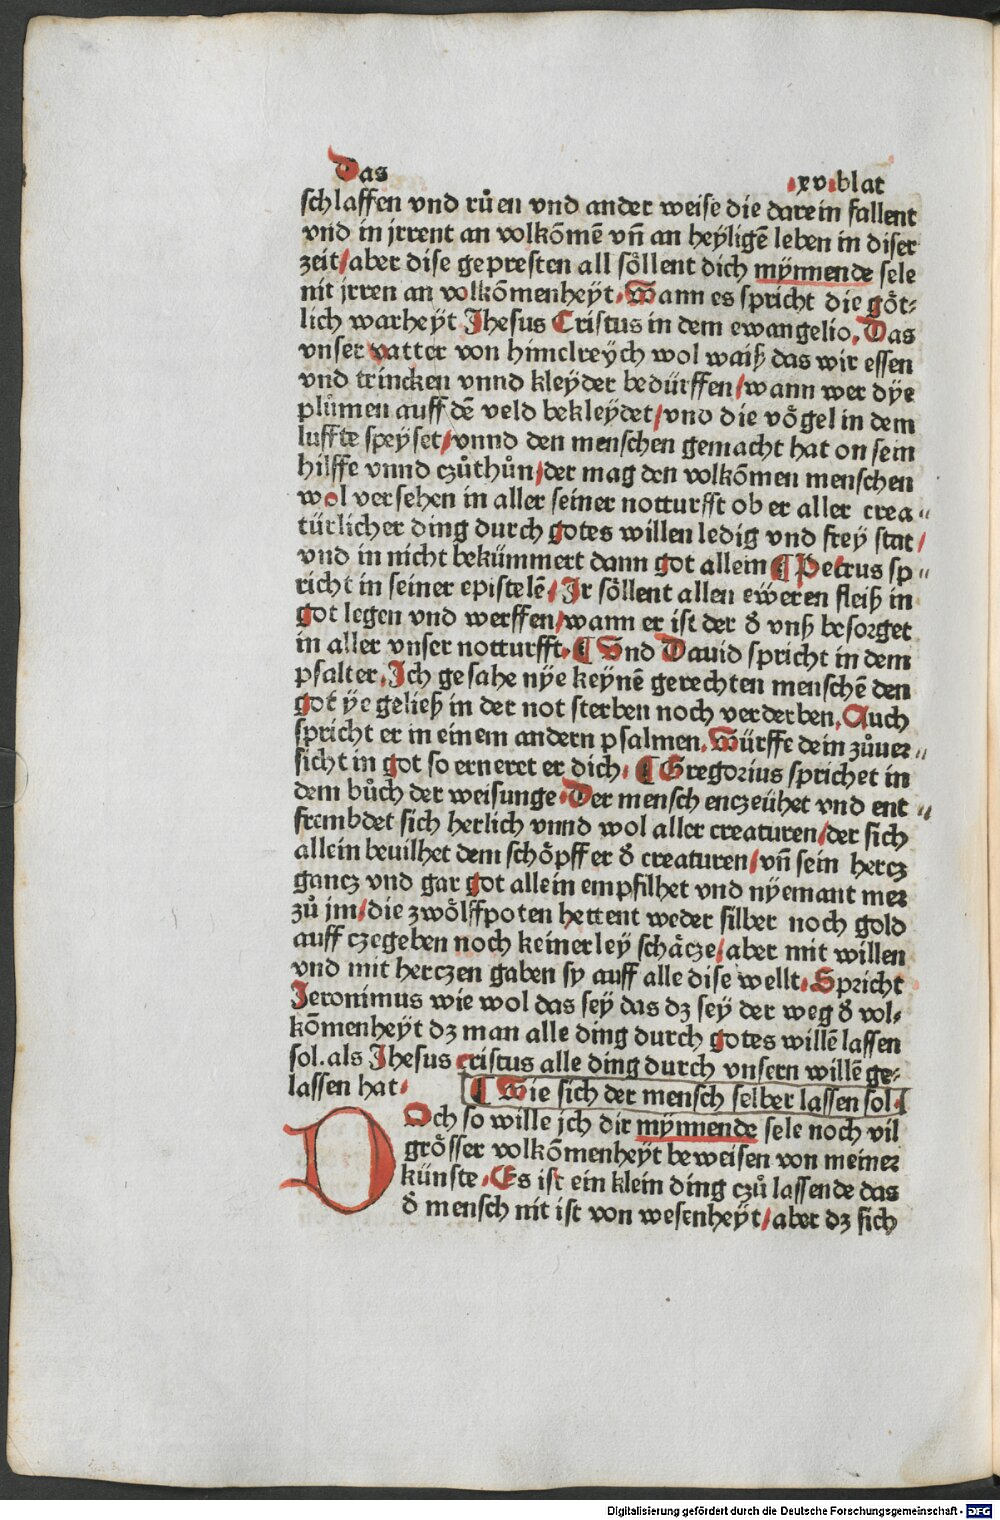 Das
.xv.blat
schlaffen vnd růen vnd ander weise die darein fallent
vnd in jrrent an volkōmē vn̄ an heyligē leben in diser
zeit/aber dise gepresten all söllent dich mynnende sele
nit jrren an volkōmenheyt. Wann es spricht die göt⸗
lich warheyt Jhesus Cristus in dem ewangelio. Das
vnser vatter von himelreych wol waiß das wir essen
vnd trincken vnnd kleyder bedürffen/wann wer dye
plůmen auff dē veld bekleydet/vnd die vögel in dem
luffte speyset/vnnd den menschen gemacht hat on sein
hilffe vnnd czůthůn/der mag den volkōmen menschen
wol versehen in aller seiner notturfft ob er aller crea⸗
türlicher ding durch gotes willen ledig vnd frey stat/
vnd in nicht bekümmert dann got allein ¶ Petrus sp⸗
richt in seiner epistelē. Jr söllent allen eweren fleiß in
got legen vnd werffen/wann er ist der d̄ vnß besorget
in aller vnser notturfft. ¶ Vnd Dauid spricht in dem
psalter. Jch gesahe nye keynē gerechten menschē den
got ye geließ in der not sterben noch verderben. Auch
spricht er in einem andern psalmen. Würffe dein zůuer⸗
sicht in got so erneret er dich. ¶ Gregorius sprichet in
dem bůch der weisunge. Der mensch enczeühet vnd ent⸗
frembdet sich herlich vnnd wol aller creaturen/der sich
allein beuilhet dem schöpffer d̄ creaturen/vn̄ sein hercz
gancz vnd gar got allein empfilhet vnd nyemant mer
zů jm/die zwölffpoten hettent weder silber noch gold
auff czegeben noch keinerley schäcze/aber mit willen
vnd mit herczen gaben sy auff alle dise wellt. Spricht
Jeronimus wie wol das sey das dz sey der weg d̄ vol⸗
kōmenheyt dz man alle ding durch gotes willē lassen
sol.als Jhesus cristus alle ding durch vnsern willē ge⸗
lassen hat.
¶ Wie sich der mensch selber lassen sol.
DOch so wille jch dir mynnende sele noch vil
grösser volkōmenheyt beweisen von meiner
künste. Es ist ein klein ding czů lassende das
d̄ mensch nit ist von wesenheyt/aber dz sich
Digitalisierung gefördert durch die Deutsche Forschungsgemeinschaft - DFG